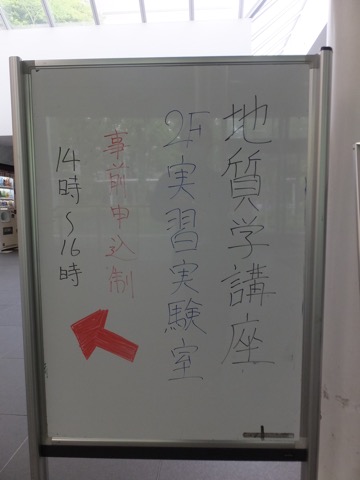 地質学講座
2F実習実験室
事前申込制
14時~16時